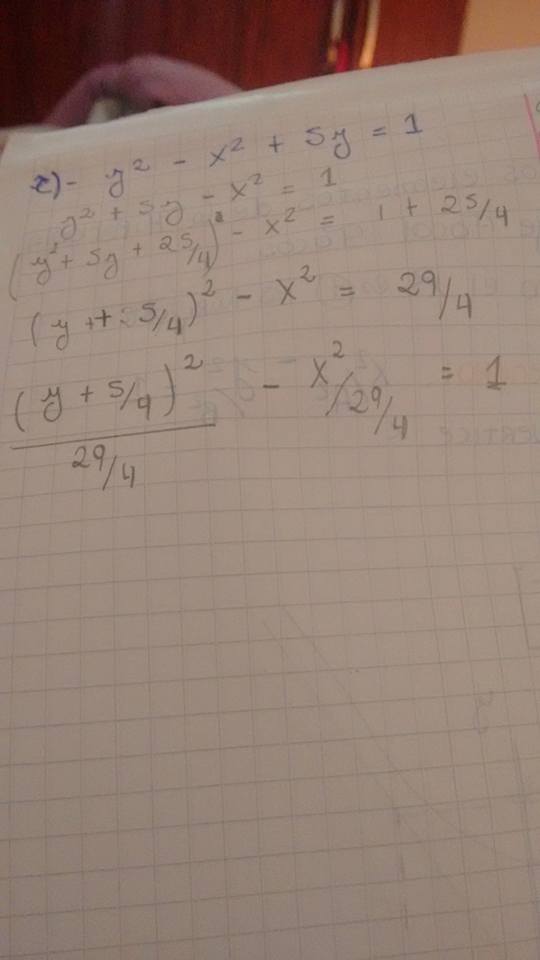 c)- y² - x² + 5y = 1
y² + 5y - x² = 1
(y² + 5y + 25/4) - x² = 1 + 25/4
(y + 5/4)² - x² = 29/4
(y + 5/4)² / 29/4 - x² / 29/4 = 1
VERTICE